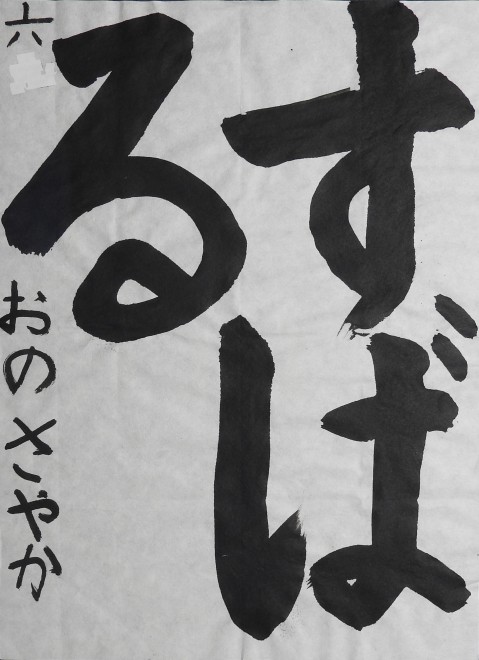 すば
る
六 おのさやか